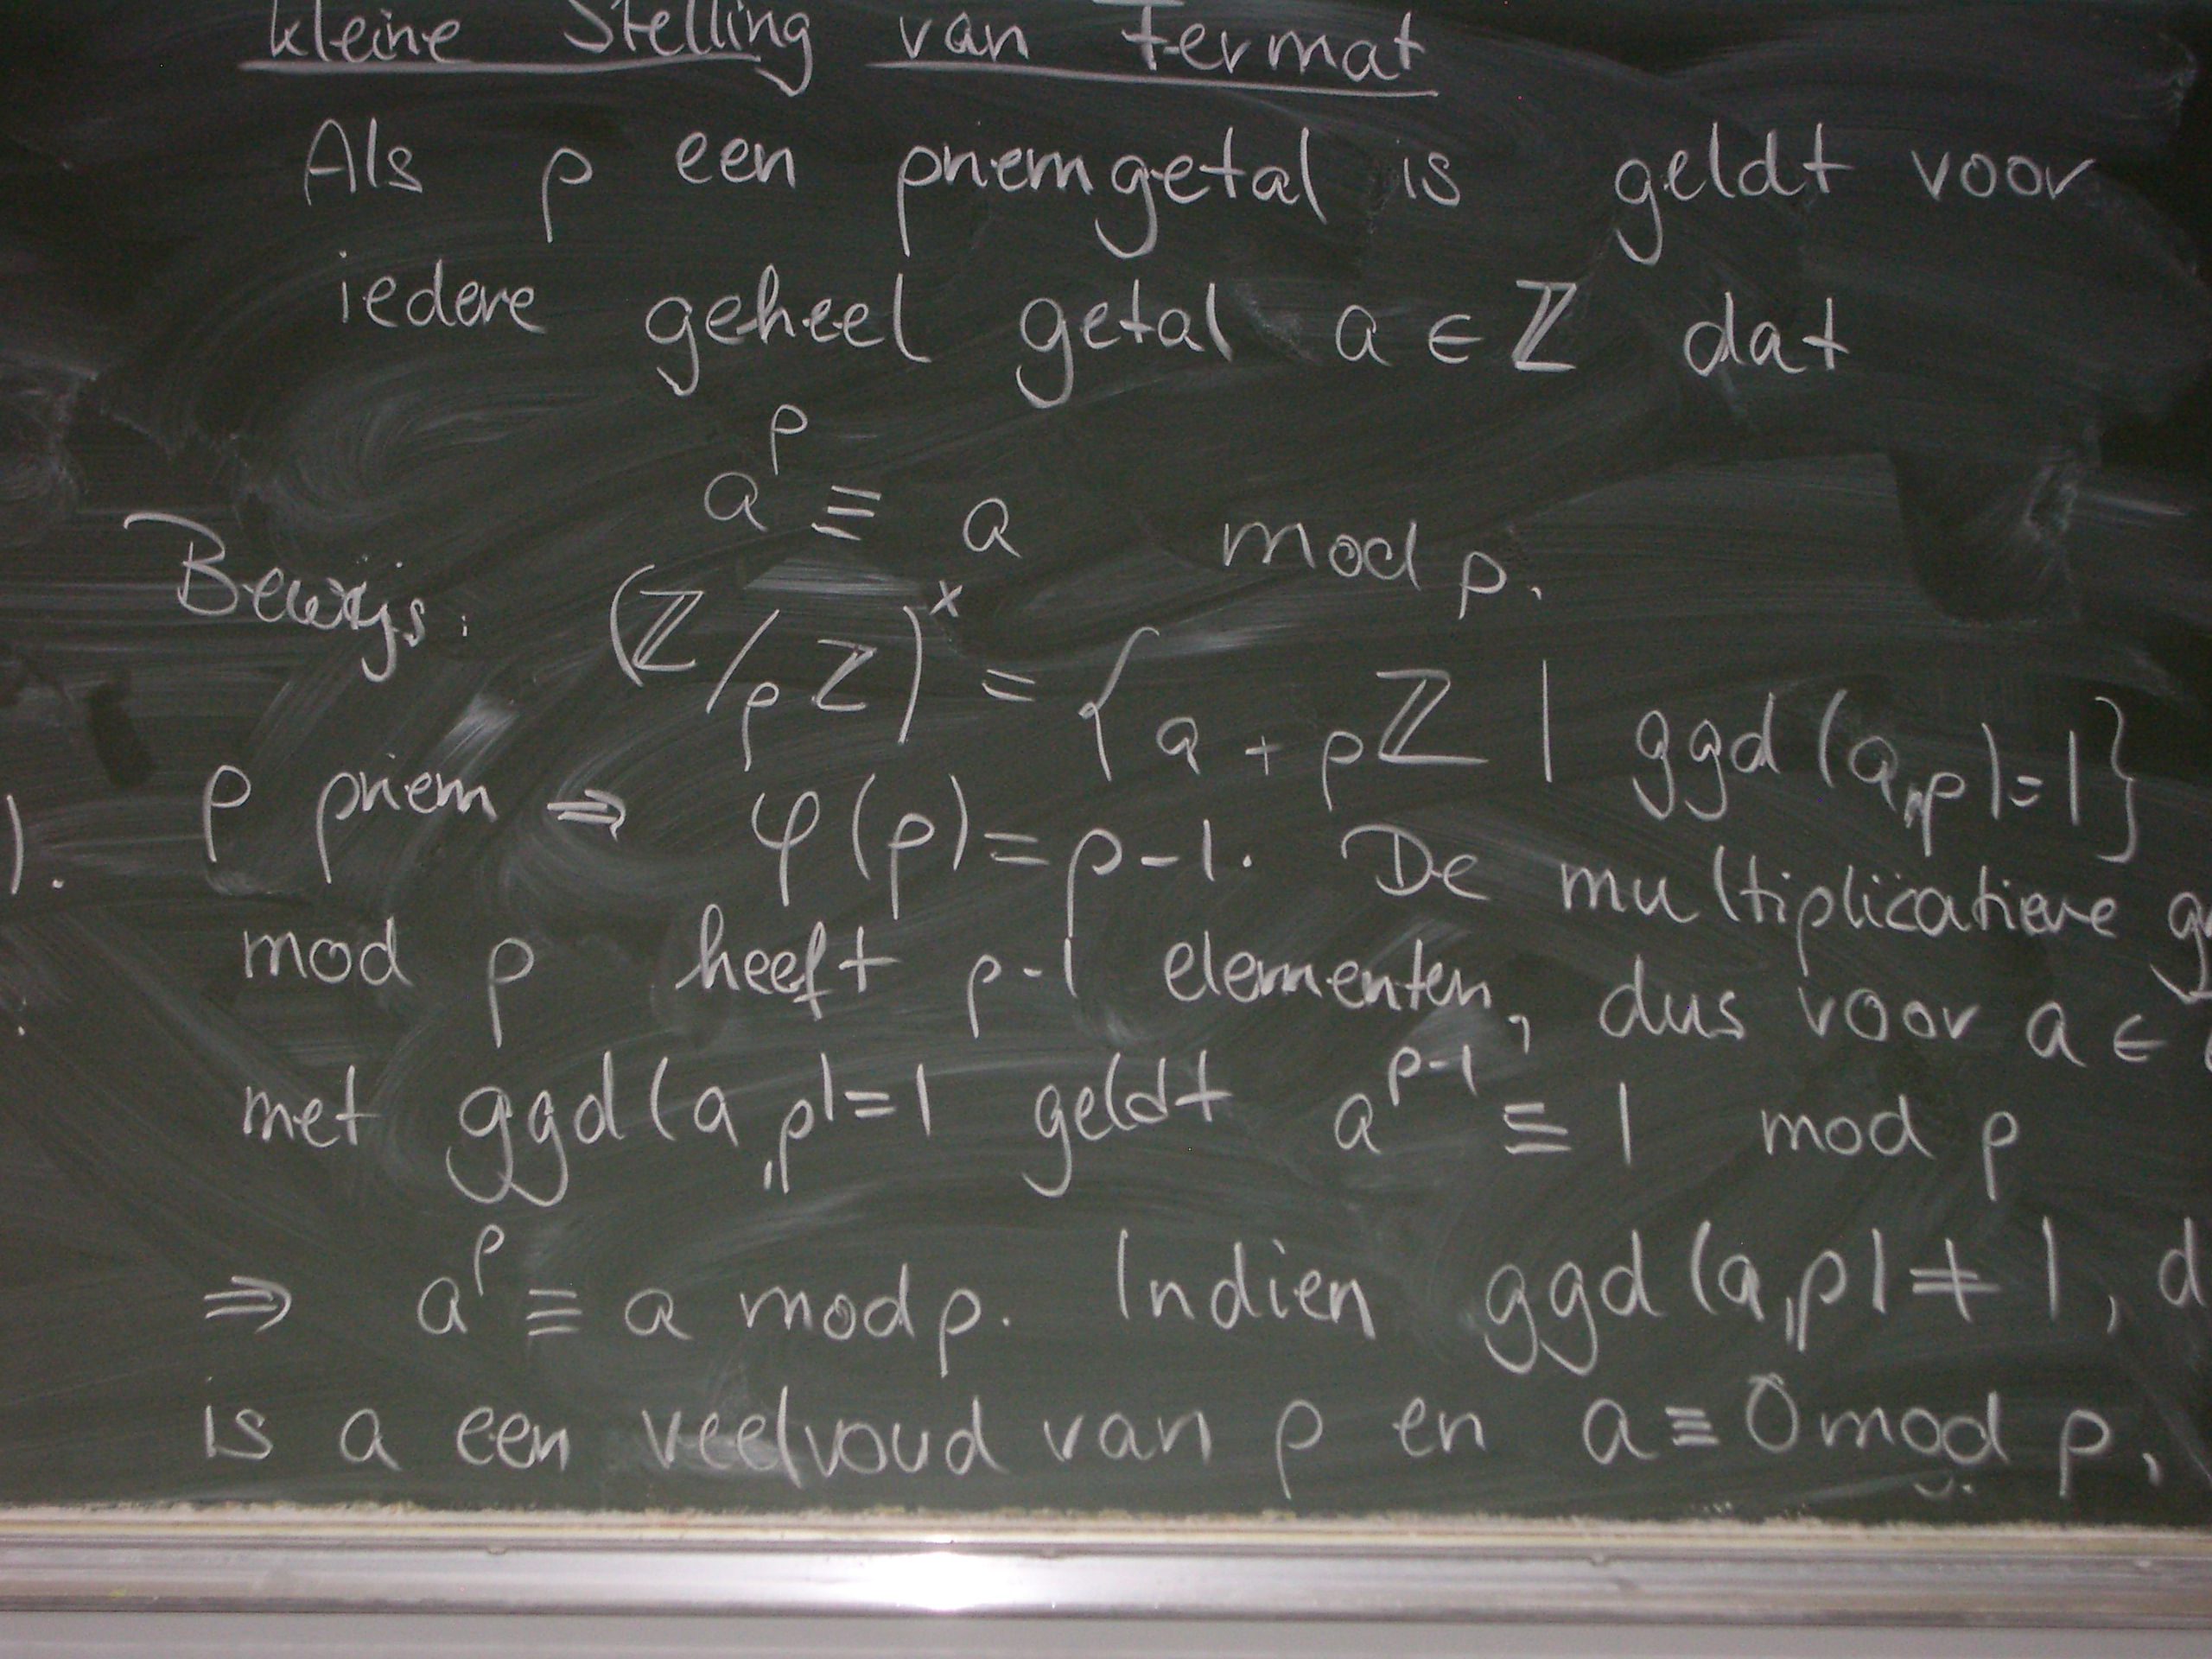 kleine Stelling van Fermat
Als p een priemgetal is geldt voor
iedere geheel getal a ∈ ℤ dat
a^p ≡ a mod p.
Bewijs: (ℤ/pℤ)^× = {a + pℤ | ggd(a,p)=1}
p priem ⇒ φ(p)=p-1. De multiplicatieve
mod p heeft p-1 elementen, dus voor a ∈
met ggd(a,p)=1 geldt a^{p-1} ≡ 1 mod p
⇒ a^p ≡ a mod p. Indien ggd(a,p) ≠ 1, d
is a een veelvoud van p en a ≡ 0 mod p.